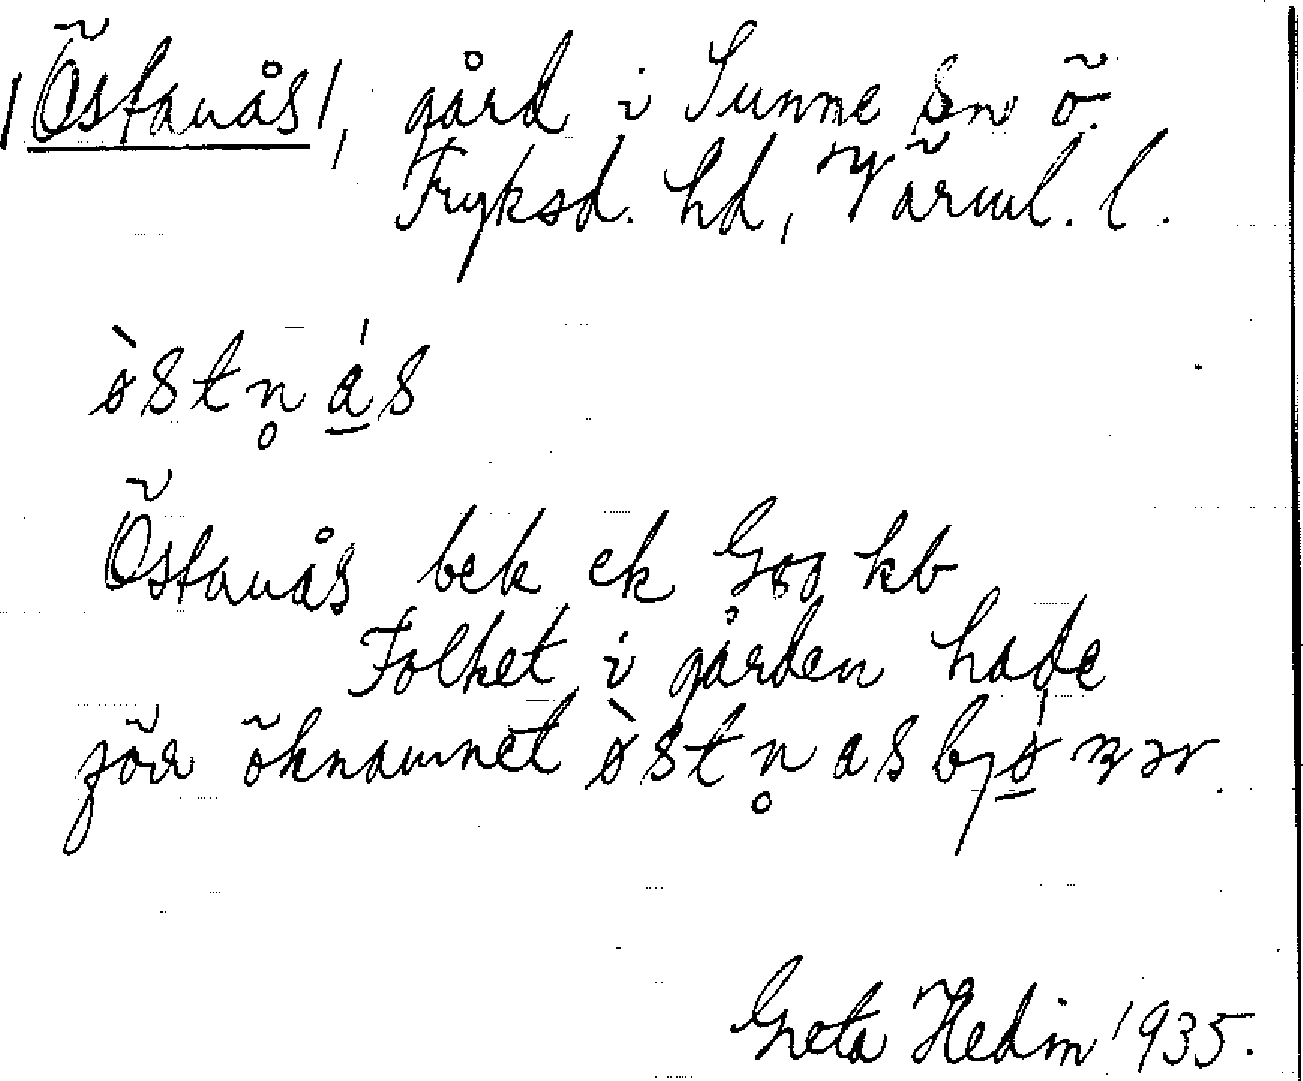 /Östanås/, gård i Sunne Sn ö.
Fryksd. hd, Värml. l.
östn̥ås
Östanås bek ek Ggg kb
Folket i gården hade
förr öknamnet
Greta Hedin 1935.